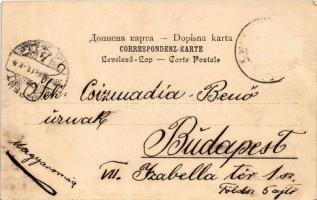 Дописна карта – Dopisna karta
CORRESPONDENZ-KARTE
Levelező-Lap – Carte Postale
Csizmadia Benő
úrnak
Budapest
VII. Izabella tér 1. sz.
Földsz 5 ajtó
Magyarország